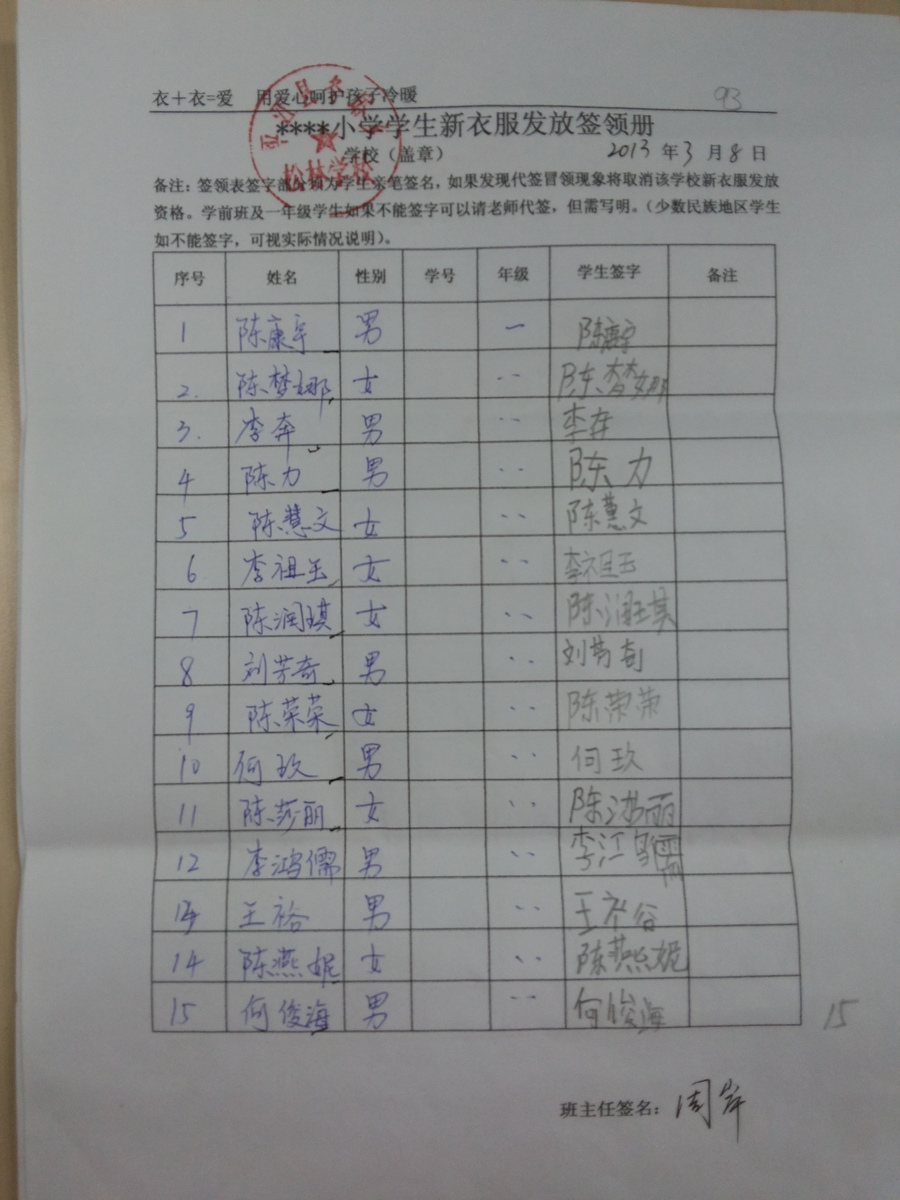 衣＋衣=爱 用爱心呵护孩子冷暖 93
****小学学生新衣服发放签领册
学校（盖章） 2013 年 3 月 8 日
松林学校
备注：签领表签字部分须为学生亲笔签名，如果发现代签冒领现象将取消该学校新衣服发放
资格。学前班及一年级学生如果不能签字可以请老师代签，但需写明。（少数民族地区学生
如不能签字，可视实际情况说明）。
序号 姓名 性别 学号 年级 学生签字 备注
1 陈康宇 男 一 陈康宇
2. 陈梦娜 女 ‥ 陈梦娜
3. 李奔 男 ‥ 李奔
4 陈力 男 ‥ 陈力
5 陈慧文 女 ‥ 陈慧文
6 李祖玉 女 ‥ 李祖玉
7 陈润琪 女 ‥ 陈润琪
8 刘芳奇 男 ‥ 刘芳奇
9 陈荣荣 女 ‥ 陈荣荣
10 何玖 男 ‥ 何玖
11 陈莎丽 女 ‥ 陈莎丽
12 李鸿儒 男 ‥ 李鸿儒
13 王裕 男 ‥ 王裕
14 陈燕妮 女 ‥ 陈燕妮
15 何俊海 男 ‥ 何俊海
15
班主任签名：周岸